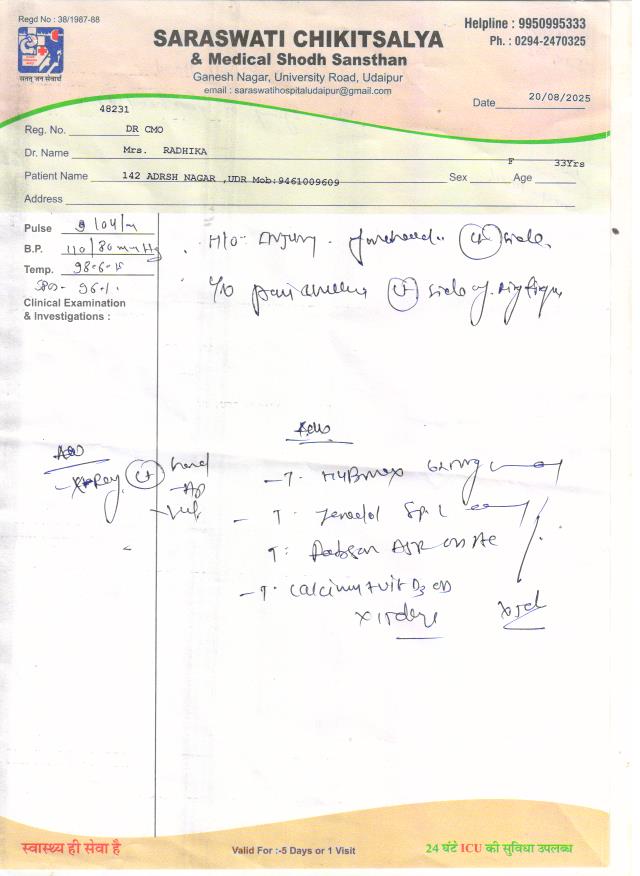 Regd No : 38/1987-88
सतत् जन सेवार्थ
SARASWATI CHIKITSALYA
& Medical Shodh Sansthan
Ganesh Nagar, University Road, Udaipur
email : saraswatihospitaludaipur@gmail.com
Helpline : 9950995333
Ph. : 0294-2470325
Date 20/08/2025
48231
Reg. No. DR CMO
Dr. Name Mrs. RADHIKA
Patient Name 142 ADRSH NAGAR ,UDR Mob:9461009609 Sex F Age 33Yrs
Address
Pulse 104/m
B.P. 110/80 mmHg
Temp. 98.6
96%
Clinical Examination
& Investigations :
H/O - Injury. forehead side
side of ring finger
Adv
X-Ray hand
AP
Adv
- T.
- T. Sp
T. DSR
- T. Calcium + vit D3 OD
x 15 days x 5d
स्वास्थ्य ही सेवा है
Valid For :-5 Days or 1 Visit
24 घंटे ICU की सुविधा उपलब्ध